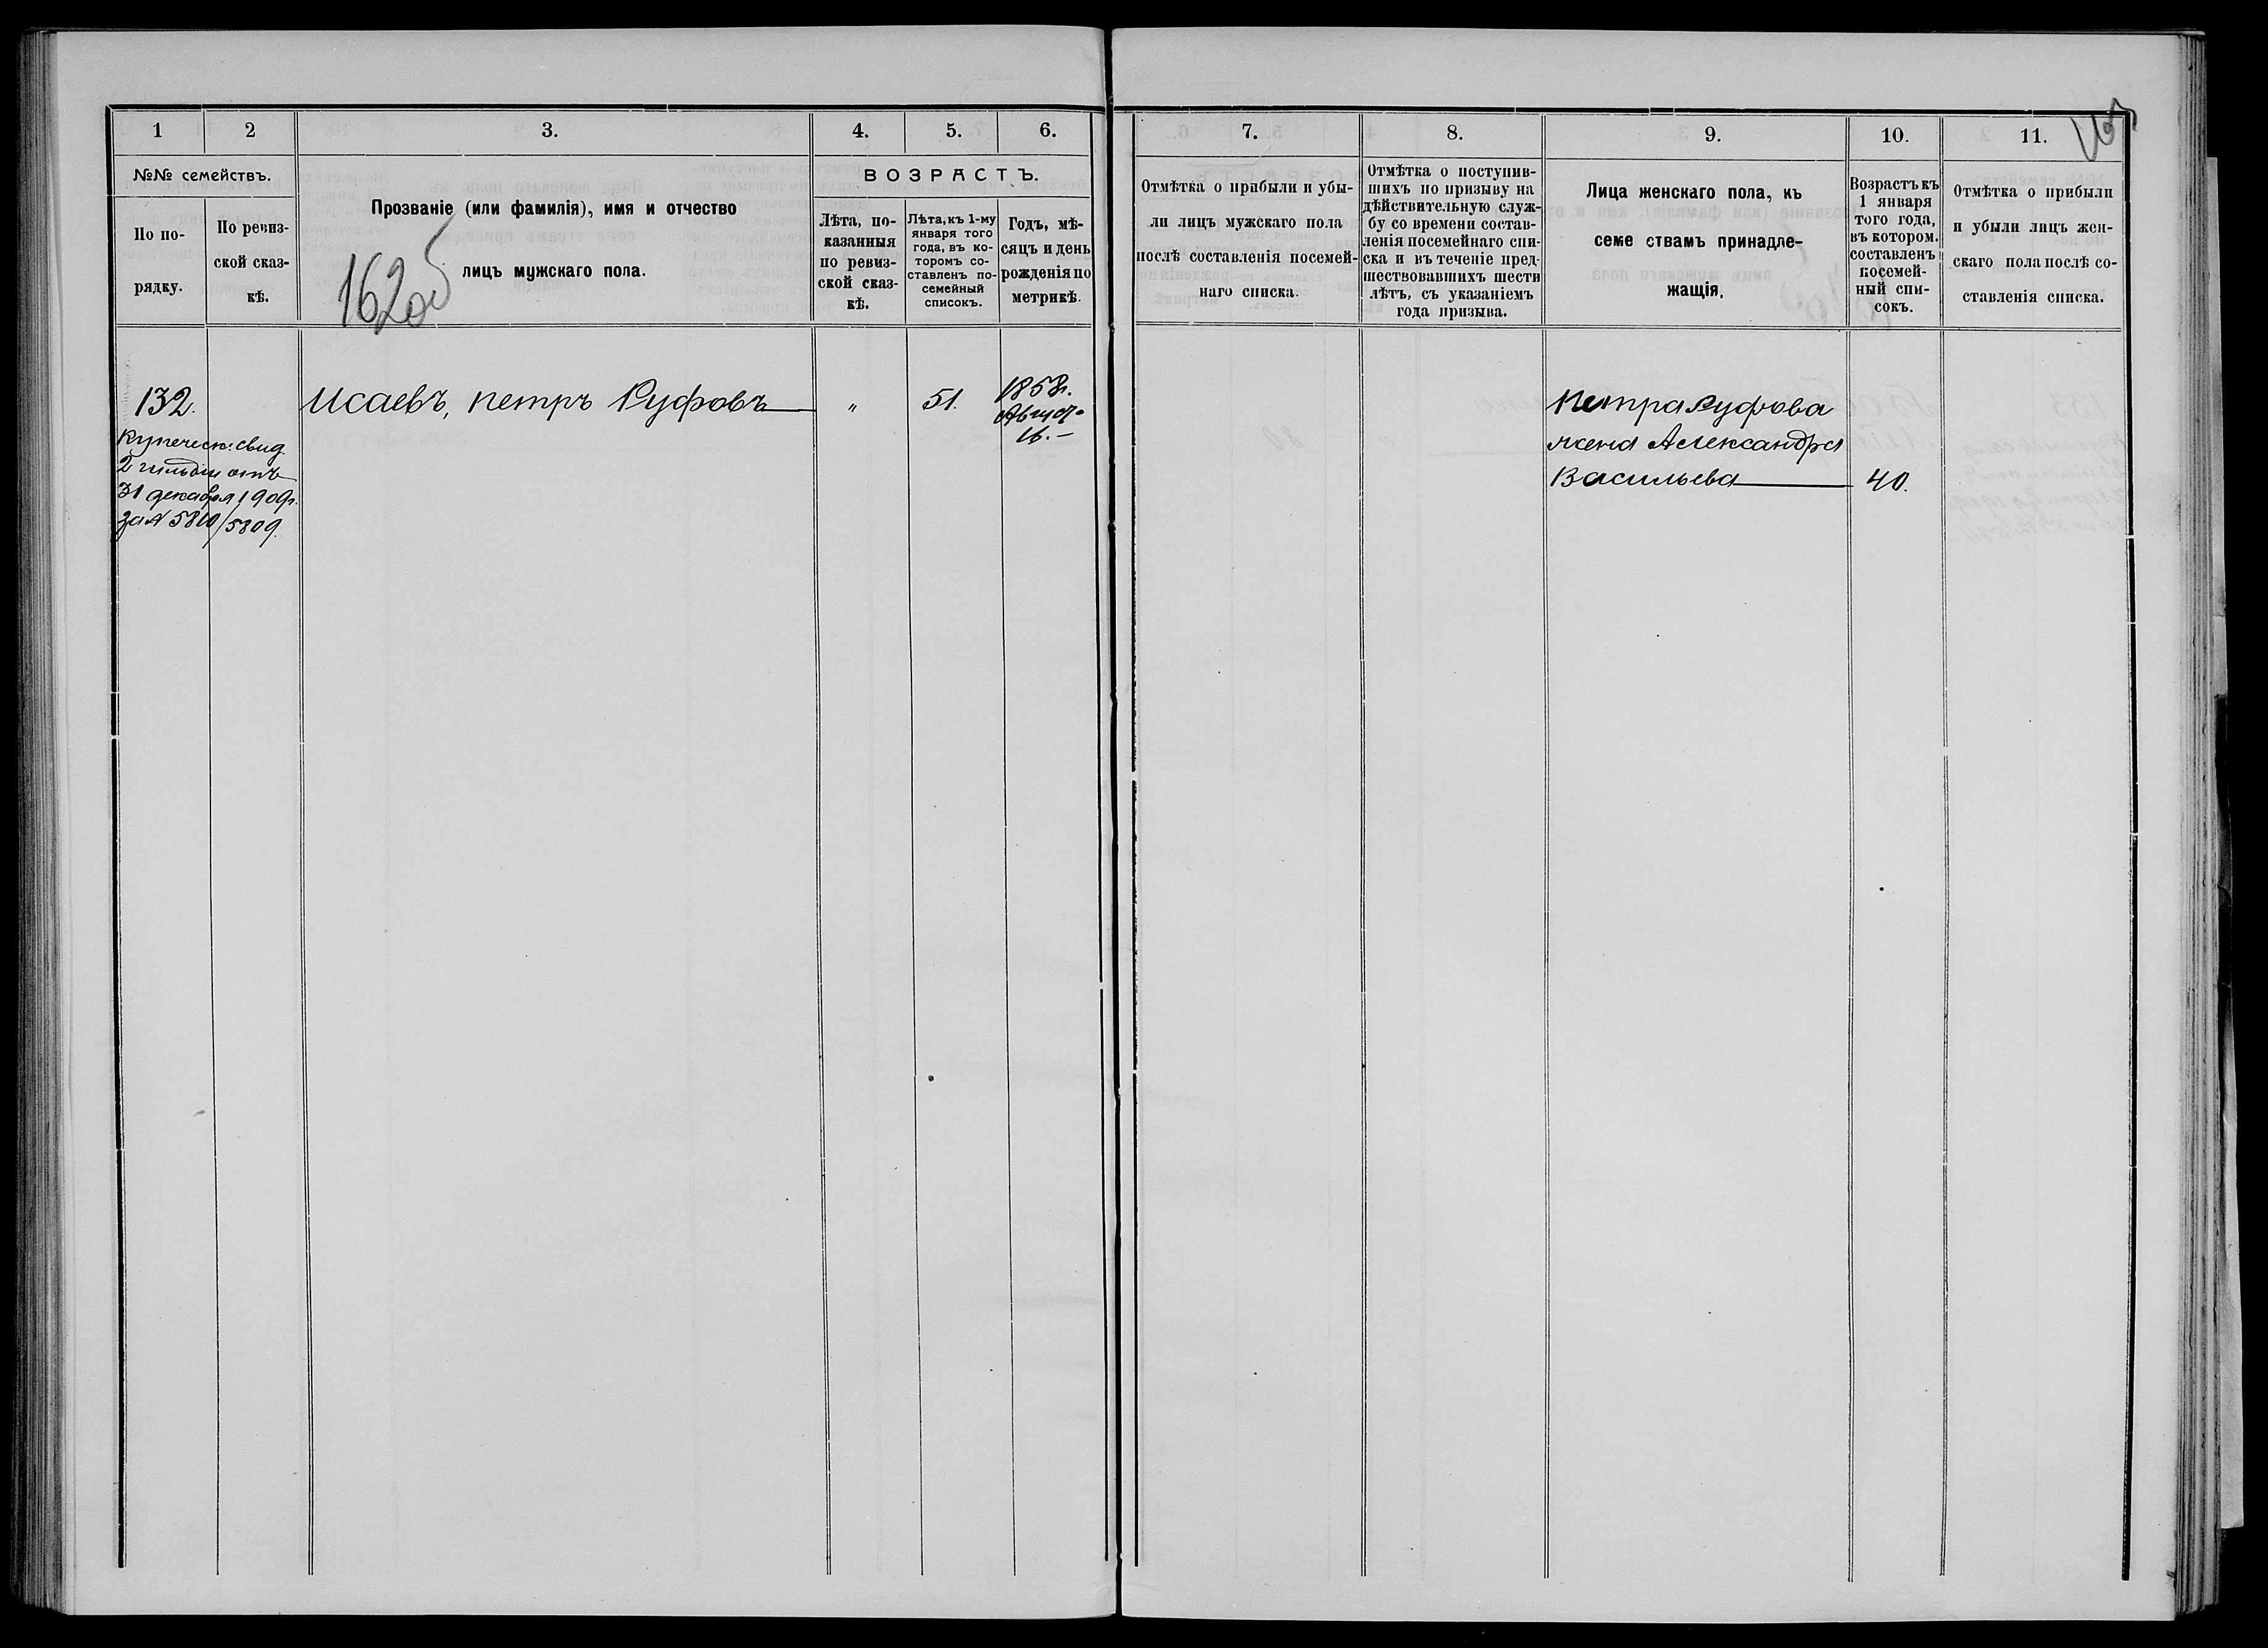 1
2
3.
4.
5.
6.
№№ семействъ.
По по-
рядку.
По ревиз-
ской сказ-
кѣ.
Прозваніе (или фамилія), имя и отчество
лицъ мужскаго пола.
ВОЗРАСТЪ.
Лѣта, по-
казанныя
по ревиз-
ской сказ-
кѣ.
Лѣта, къ 1-му
января того
года, въ ко-
торомъ со-
ставленъ по-
семейный
списокъ.
Годъ, мѣ-
сяцъ и день
рожденія по
метрикѣ.
132.
Купеческ. свид.
2 гильдіи отъ
31 декабря 1909г.
за № 5810/5809.
Исаевъ, Петръ Руфовъ
"
51.
1858г.
Август
16.
7.
8.
9.
10.
11.
Отмѣтка о прибыли и убы-
ли лицъ мужскаго пола
послѣ составленія посемей-
наго списка.
Отмѣтка о поступив-
шихъ по призыву на
дѣйствительную служ-
бу со времени состав-
ленія посемейнаго спи-
ска и въ теченіе пред-
шествовавшихъ шести
лѣтъ, съ указаніемъ
года призыва.
Лица женскаго пола, къ
семе ствамъ принадле-
жащія.
Возрастъ къ
1 января
того года,
въ котором.
составленъ
посемей-
ный спи-
сокъ.
Отмѣтка о прибыли
и убыли лицъ жен-
скаго пола послѣ со-
ставленія списка.
Петра Руфова
жена Александра
Васильева
40.